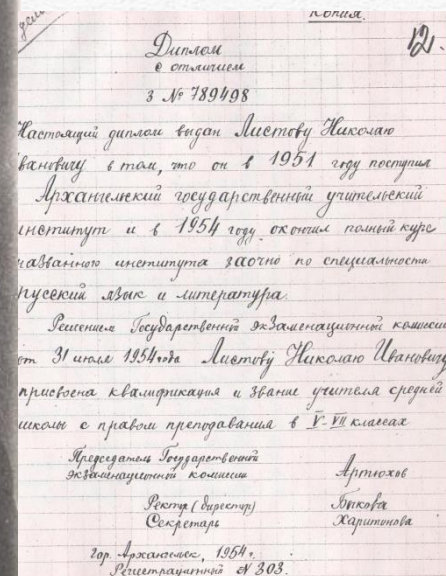 Копия.
12.
Диплом
с отличием
З № 789498
Настоящий диплом выдан Листову Николаю
Ивановичу в том, что он в 1951 году поступил
Архангельский государственный учительский
институт и в 1954 году окончил полный курс
названного института заочно по специальности
русский язык и литература.
Решением Государственной экзаменационной комиссии
от 31 июля 1954 года Листову Николаю Ивановичу
присвоена квалификация и звание учителя средней
школы с правом преподавания в V-VII классах
Председатель Государственной
экзаменационной комиссии Артюхов
Ректор (директор) Быкова
Секретарь Харитонова
гор. Архангельск, 1954 г.
Регистрационный № 303.